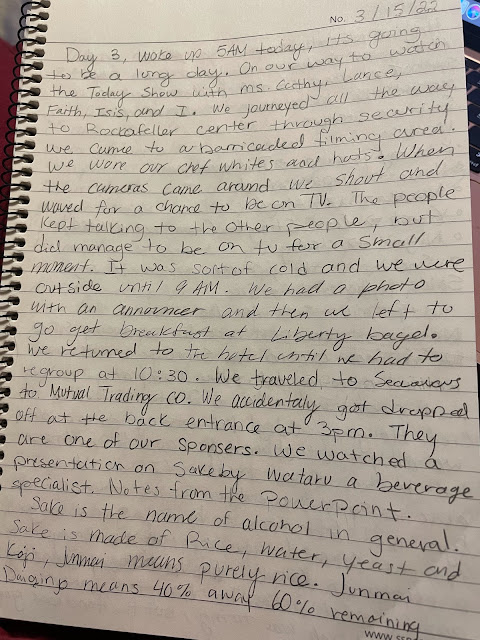 No. 3/15/22
Day 3, woke up 5AM today, its going
to be a long day. On our way to watch
the Today Show with ms. Cathy, Lance,
Faith, Isis, and I. We journeyed all the way
to Rockafeller center through security
we came to a barricaded filming area.
We wore our chef whites and hats. When
the cameras came around we shout and
waved for a chance to be on TV. The people
kept talking to the other people, but
did manage to be on tv for a small
moment. It was sort of cold and we were
outside until 9 AM. We had a photo
with an announcer and then we left to
go get breakfast at Liberty bagel.
We returned to the hotel until we had to
regroup at 10:30. We traveled to
to Mutual Trading CO. We accidentaly got dropped
off at the back entrance at 3pm. They
are one of our sponsers. We watched a
presentation on Sake by Wataru a beverage
specialist. Notes from the PowerPoint.
Sake is the name of alcohol in general.
Sake is made of Rice, water, yeast and
Koji, Junmai means purely rice. Junmai
means 40% away 60% remaining